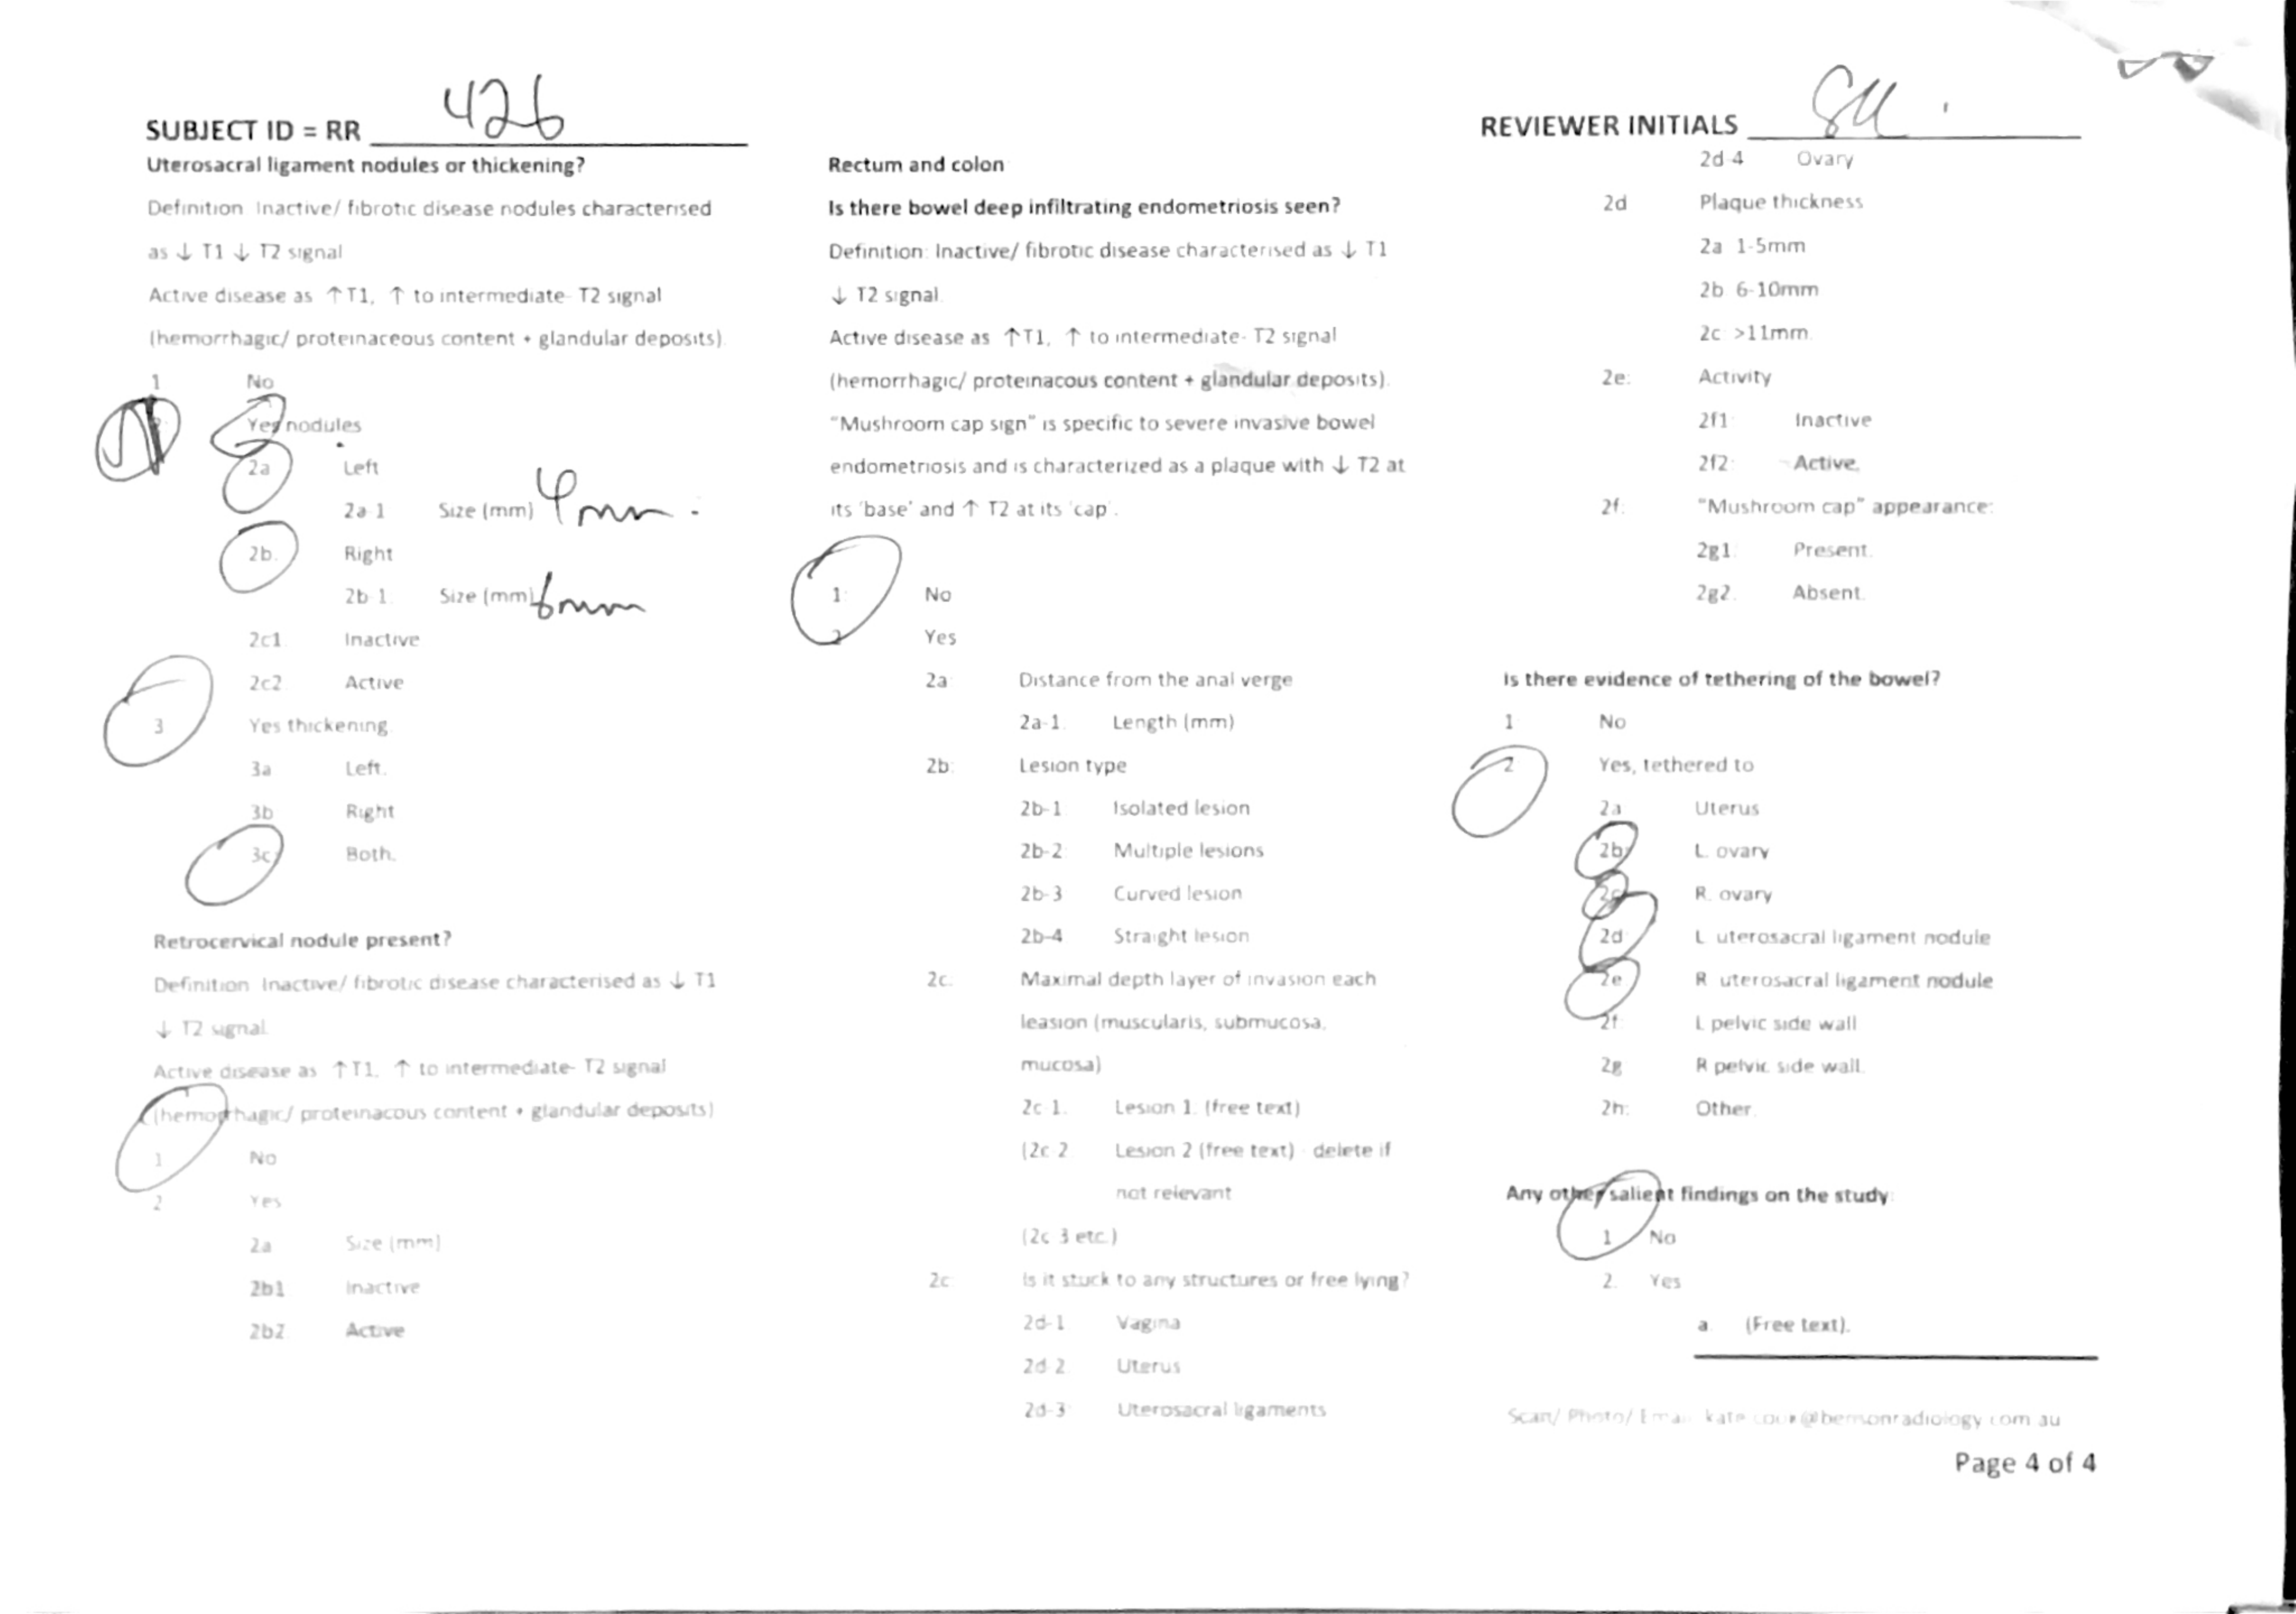 SUBJECT ID = RR 426
REVIEWER INITIALS
Uterosacral ligament nodules or thickening?
Definition Inactive/ fibrotic disease nodules characterised
as ↓ T1 ↓ T2 signal
Active disease as ↑T1, ↑ to intermediate- T2 signal
(hemorrhagic/ proteinaceous content + glandular deposits).
1 No
Yes nodules
2a Left
2a-1 Size (mm) 4mm
2b. Right
2b-1. Size (mm) 6mm
2c1. Inactive
2c2. Active
3 Yes thickening.
3a Left.
3b Right
3c Both.
Retrocervical nodule present?
Definition Inactive/ fibrotic disease characterised as ↓ T1
↓ T2 signal.
Active disease as ↑T1, ↑ to intermediate- T2 signal
(hemorrhagic/ proteinacous content + glandular deposits)
1 No
2 Yes
2a Size (mm)
2b1 Inactive
2b2 Active
Rectum and colon
Is there bowel deep infiltrating endometriosis seen?
Definition: Inactive/ fibrotic disease characterised as ↓ T1
↓ T2 signal.
Active disease as ↑T1, ↑ to intermediate- T2 signal
(hemorrhagic/ proteinacous content + glandular deposits).
"Mushroom cap sign" is specific to severe invasive bowel
endometriosis and is characterized as a plaque with ↓ T2 at
its 'base' and ↑ T2 at its 'cap'.
1: No
2 Yes
2a: Distance from the anal verge
2a-1. Length (mm)
2b: Lesion type
2b-1: Isolated lesion
2b-2: Multiple lesions
2b-3 Curved lesion
2b-4 Straight lesion
2c. Maximal depth layer of invasion each
leasion (muscularis, submucosa,
mucosa)
2c-1. Lesion 1. (free text)
(2c-2 Lesion 2 (free text) - delete if
not relevant
(2c-3 etc.)
2c: Is it stuck to any structures or free lying?
2d-1 Vagina
2d-2 Uterus
2d-3: Uterosacral ligaments
2d-4 Ovary
2d Plaque thickness
2a 1-5mm
2b 6-10mm
2c: >11mm.
2e: Activity
2f1: Inactive
2f2: Active.
2f. "Mushroom cap" appearance:
2g1: Present.
2g2. Absent.
Is there evidence of tethering of the bowel?
1 No
2 Yes, tethered to
2a: Uterus
2b: L. ovary
2c R. ovary
2d L uterosacral ligament nodule
2e R uterosacral ligament nodule
2f: L pelvic side wall
2g R pelvic side wall.
2h: Other.
Any other salient findings on the study:
1 No
2. Yes
a (Free text).
Scan/ Photo/ Email kate.cook@bensonradiology.com.au
Page 4 of 4